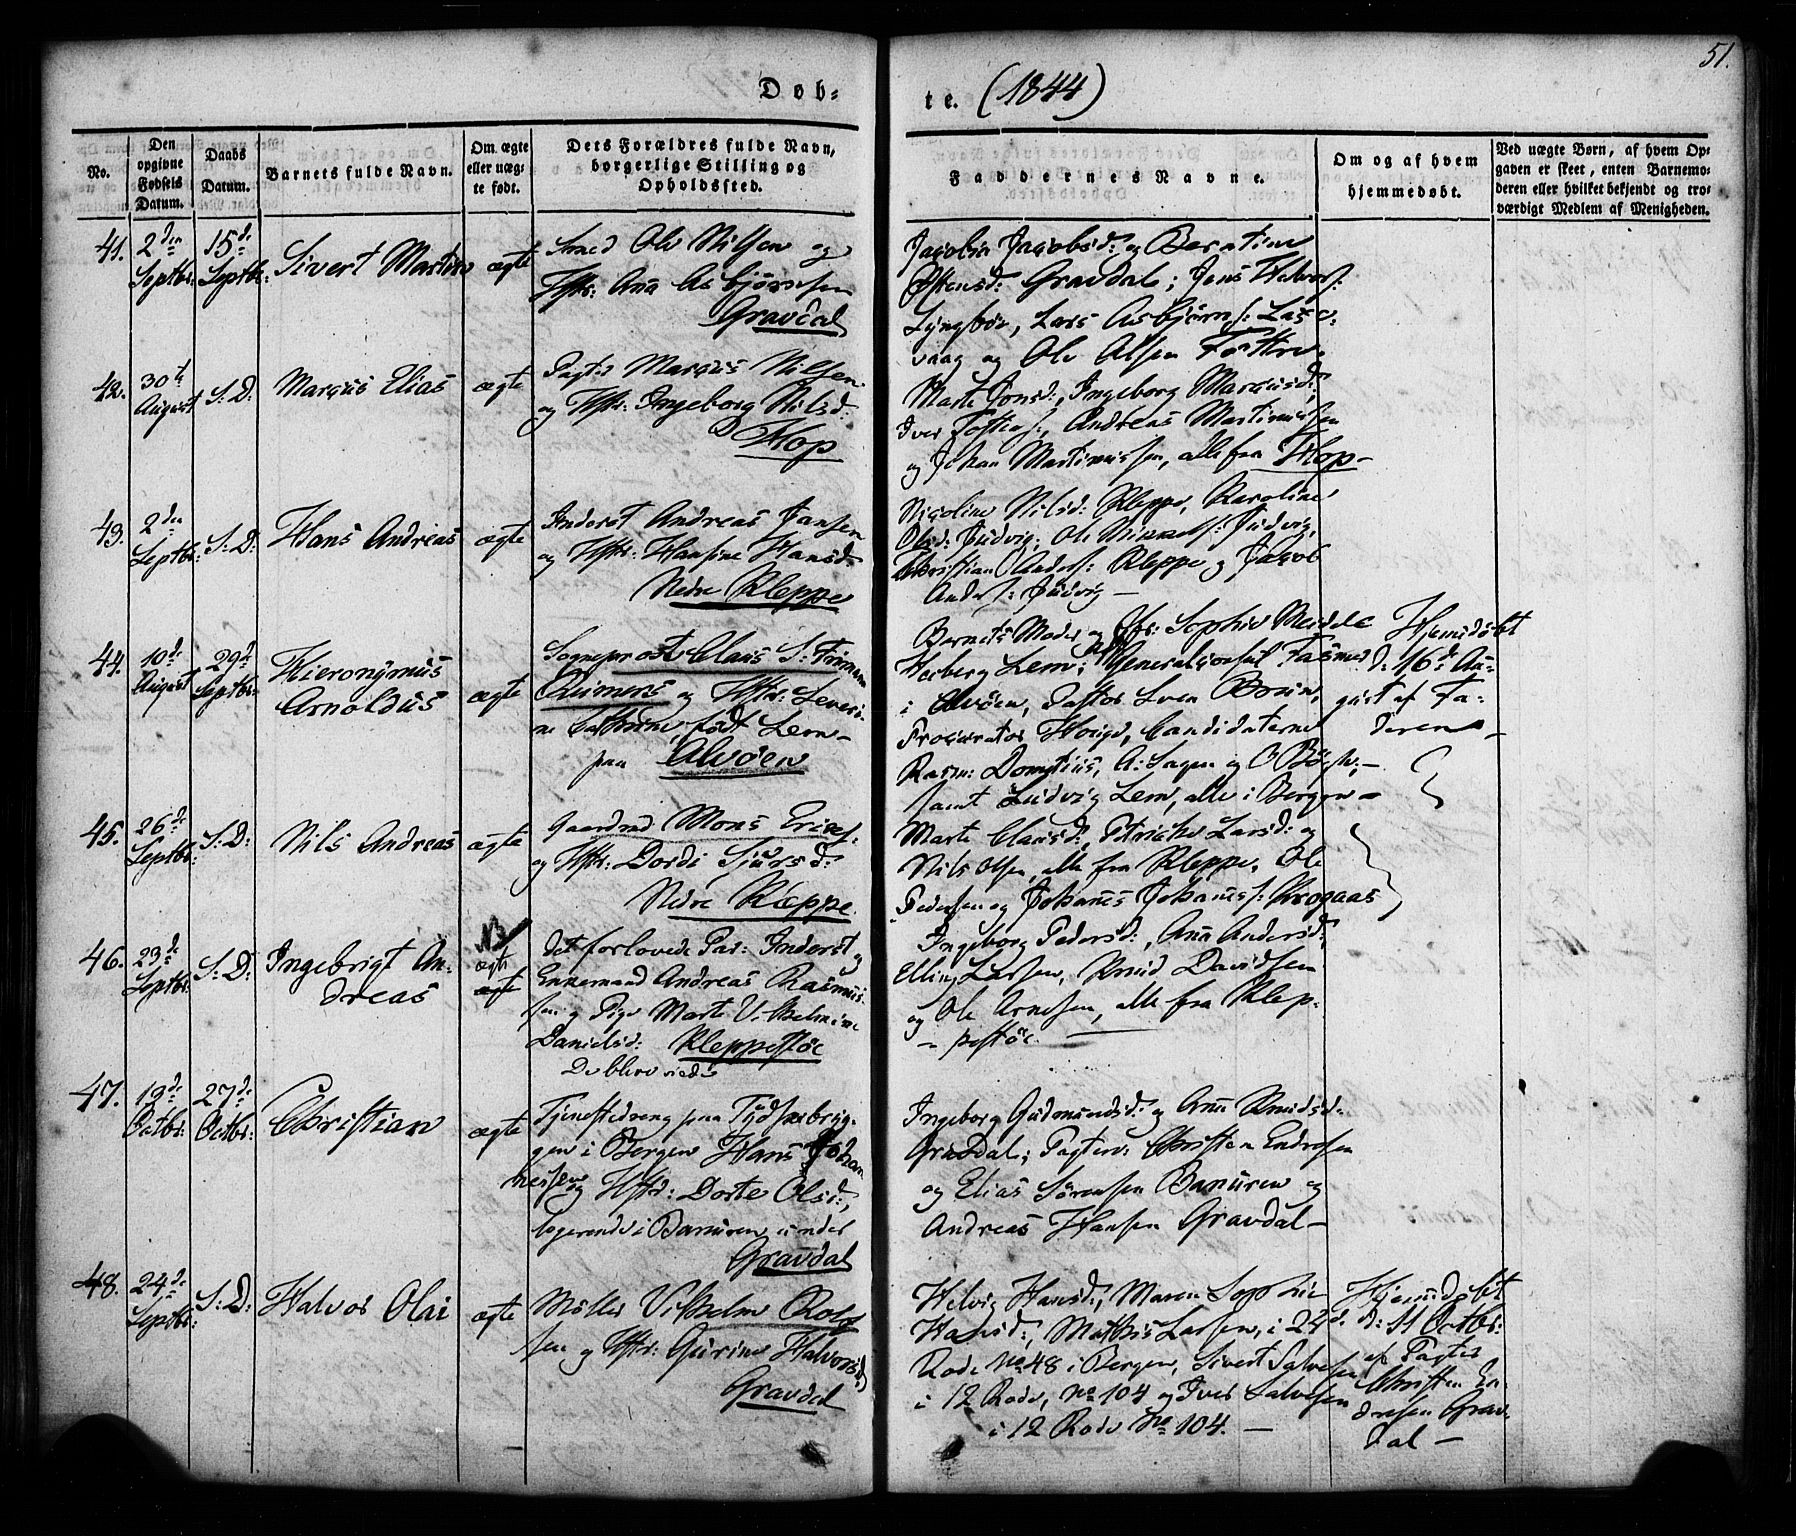 51.
Døb-
te. (1844)
No.
Den opgivne Fødsels Datum.
Daabs Datum.
Barnets fulde Navn.
Om ægte eller uægte født.
Dets Forældres fulde Navn, borgerlige Stilling og Opholdssted.
Faddernes Navne.
Om og af hvem hjemmedøbt.
Ved uægte Børn, af hvem Opgaven er skeet, enten Barnemoderen eller hvilket bekjendt og troværdigt Medlem af Menigheden.
41.
2den
Septbr:
15de
Septbr:
Sivert Martin
ægte
Smed Ole Nilsen og
Hstr: Anna Asbjørnsen
Gravdal
Jacobia Jacobsd: og Berntine
Østensd: Gravdal; Jens Helvors:
Lyngbøe, Lars Asbjørns: Laxe-
vaag og Ole Olsen
42.
30te
August
S: D:
Marcus Elias
ægte
Pagter Marcus Nilsen
og Hstr: Ingeborg Nilsd:
Hop
Marte Jonsd:, Ingeborg Marcusd:,
Iver, Andreas Martinussen
og Johan Martinussen, alle fra Hop-
43.
2den
Septbr:
S: D:
Hans Andreas
ægte
Inderst Andreas Jansen
og Hstr: Hansine Hansd:
Nedre Kleppe
Nicoline Nilsd: Kleppe, Karoline
Olsd: Judvig, Ole Mikkels: Judvig,
Christian Anders: Kleppe og Jacob
Anders: Judvig -
44.
10de
August
29de
Septbr:
Hieronymus
Arnoldus
ægte
Sogneprost Claus S: Finmann
Reimers og Hstr: Severi-
ne Cathrine, født Lem-
paa Alvøen
Barnets Moder og Sophie Meidell
Herberg Lem, Generalconsul Fasmer
i Alvøen, Pastor Sven Brun,
Procurator Houge, Candidaterne
Rasm: Domptius, A: Sagen og O Bøgh,-
samt Ludvig Lem, alle i Bergen-
Hjemmedøbt
d: 16de Au-
gust af Fa-
deren-
45.
26de
Septbr:
S: D:
Nils Andreas
ægte
Gaardmd Mons Erics:
og Hstr: Dordi Sjursd:
Nedre Kleppe.
Marte Clausd:, Petriche Larsd: og
Nils Olsen, alle fra Kleppe, Ole
Pedersen og Johannes Johannes: Krogaas
46.
23de
Septbr:
S: D:
Ingebrigt An-
dreas
NB
ægte
ægte
Det forlovede Par: Inderst og
Enkemand Andreas Rasmus-
sen og Pige Marte Vilhelmine
Danielsd: Kleppestøe
De bleve viede
Ingeborg Pedersd:, Anna Andersd:
Elling Larsen, Knud Davidsen
og Ole Arnesen, alle fra Klep-
- pestøe.
47.
19de
Octbr:
27de
Octbr:
Christian
ægte
Tjenestedreng paa Tydskebryg-
gen i Bergen Hans Johan
nessen og Hstr: Dorte Olsd:,
logerende i Banuren under
Gravdal
Ingeborg Gudmundsd: og Anna Knudsd:
Gravdal; Pagterne Christen Endresen
og Elias Sørensen Banuren og
Andreas Hansen Gravdal-
48.
24de
Septbr:
S: D:
Halvor Olai
ægte
Møller Vilhelm Rolf
sen og Hstr: Gurine Halvorsd:
Gravdal
Helvig Hansd:, Maren Sophie
Hansd:, Mathis Larsen, i 22d:
Rode No 48 i Bergen, Sivert Salvesen
i 12 Rode, No 104 og Iver Salvesen
i 12 Rode No 104. -
Hjemmedøbt
d: 11 Octbr:
af Pagter
Christen En-
dresen Grav-
dal-